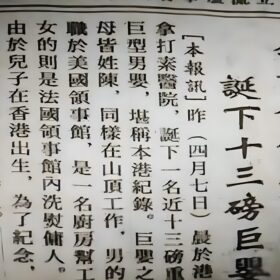 誕下十三磅巨嬰
［本報訊］昨（四月七日）晨於港
拿打素醫院，誕下一名近十三磅重
巨型男嬰，堪稱本港紀錄。巨嬰之
母皆姓陳，同樣在山頂工作，男的
職於美國領事館，是一名廚房幫工
女的則是法國領事館內洗熨傭人。
由於兒子在香港出生，為了紀念，